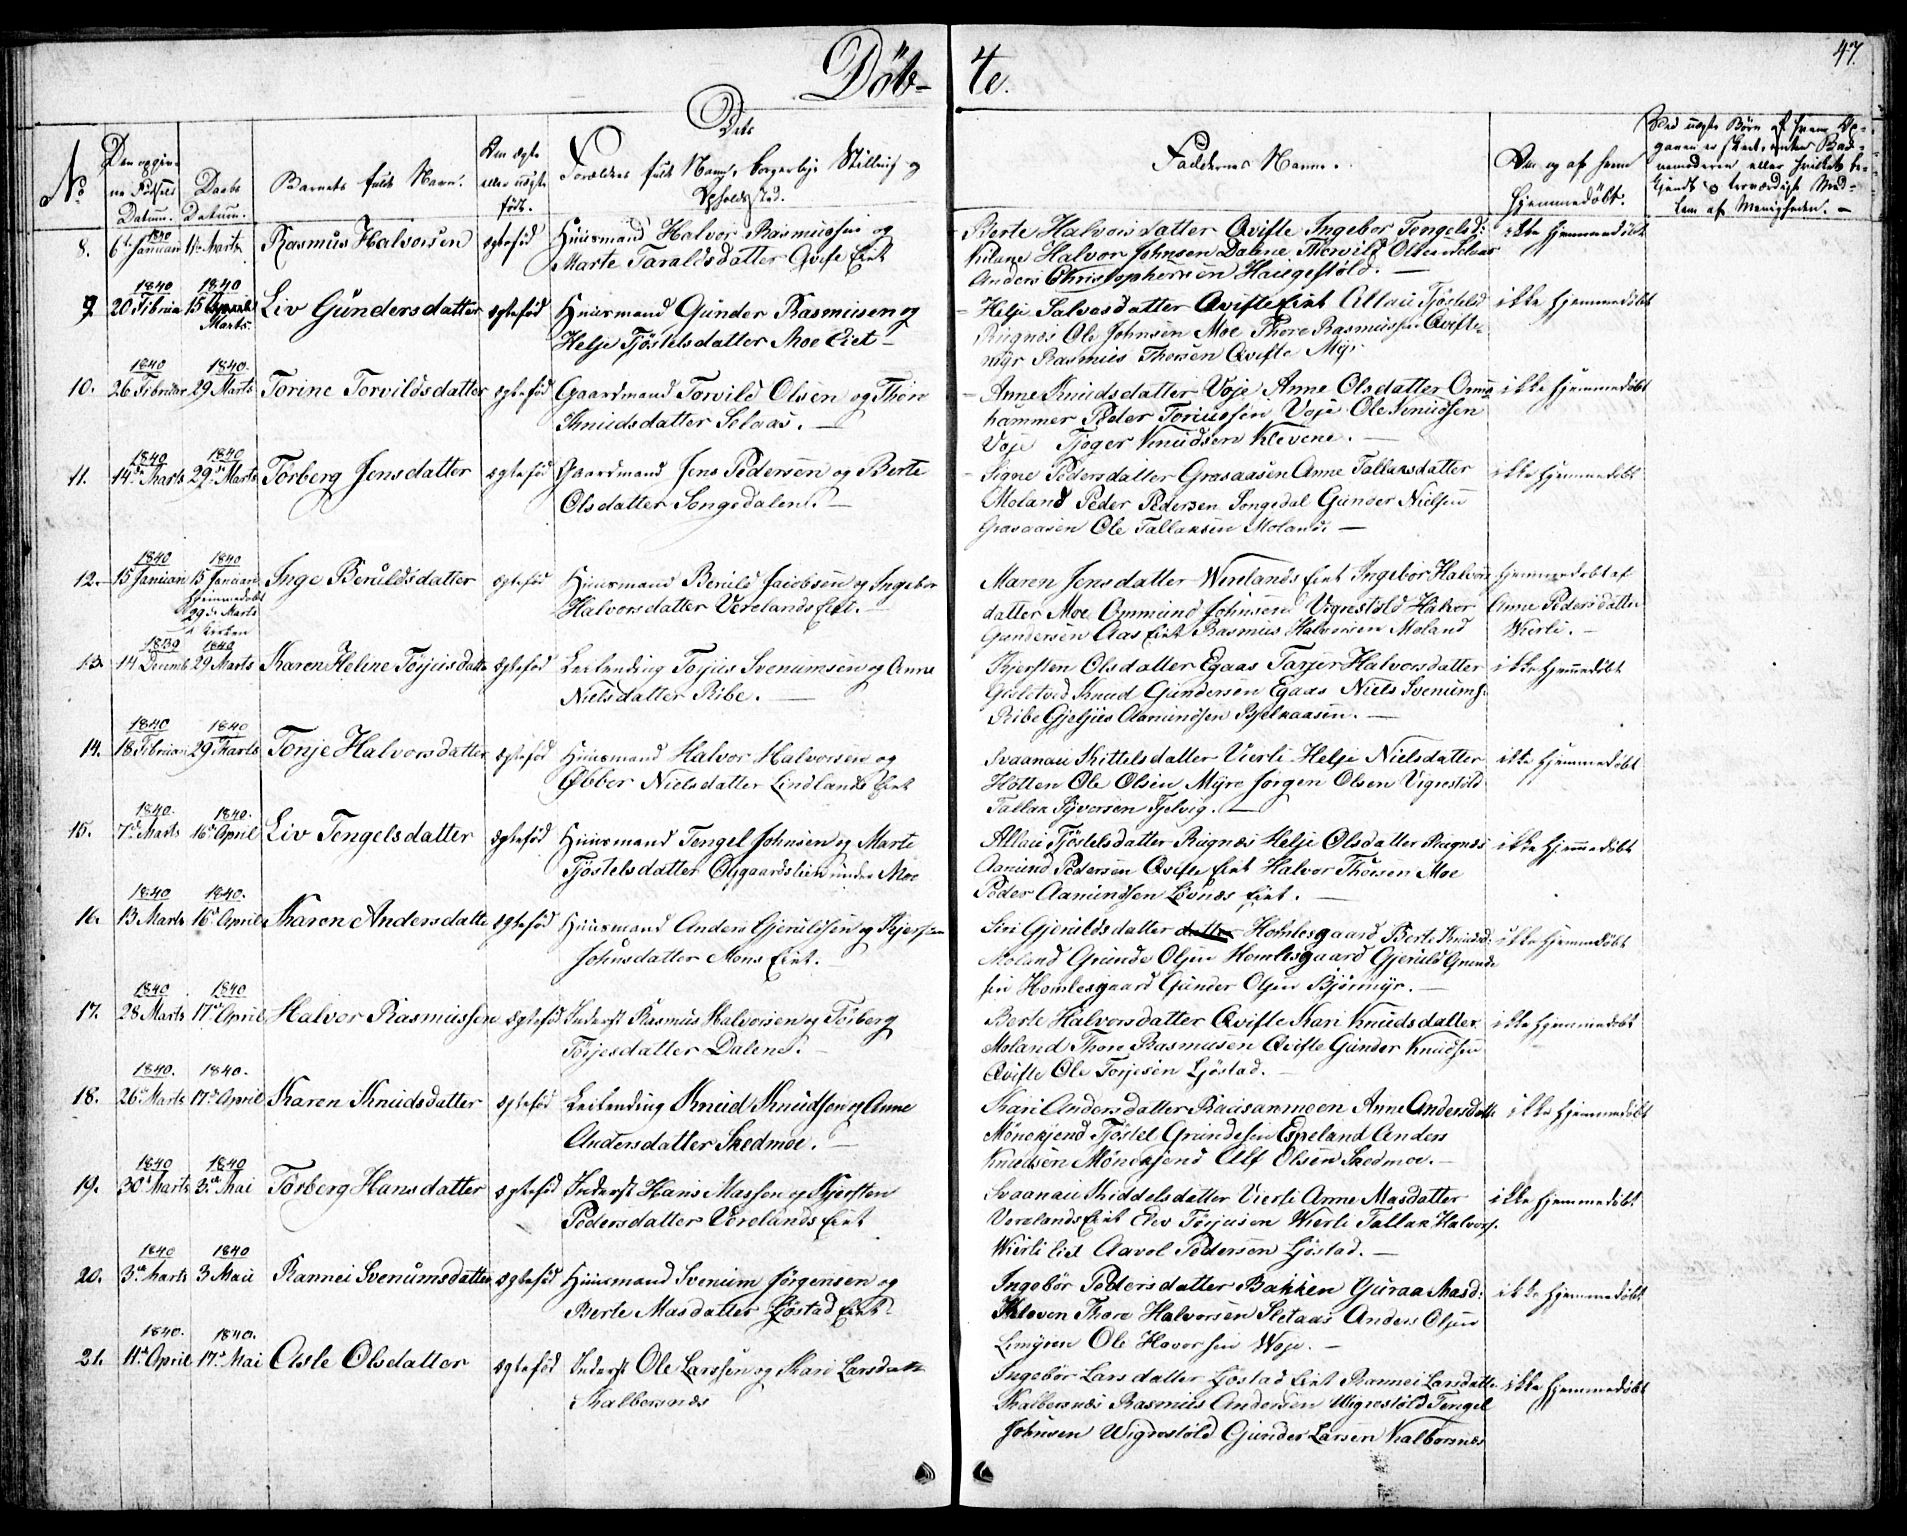 Döb-
4e.
47
No
Den opgiv-
ne Fødsels
Datum.
Daabs
Datum.
Barnets fulde Navn.
Om ægte
eller uægte
født.
Dets
Forældres fulde Navn, borgerlige Stilling og
Opholdssted.
Faddernes Navne.
Om og af hvem
hjemmedøbt.
8.
1840
6te Januar
1ste Marts
Rasmus Halvorsen
ægtefød
Huusmand Halvor Rasmussen og
Marte Taraldsdatter Qvifte Eiet
Berte Halvorsdatter Qvifte Ingebor Tengelsd:
Halvor Johnsen Dalene Thorvild Olsen Selaas
Anders Christophersen Haugestöld. —
ikke hjemmedöbt
9.
1840
20 Februar
1840
15
Marts.
Liv Gundersdatter
ægtefød
Huusmand Gunder Rasmusen og
Helje Tjöstelsdatter Moe Eiet —
Helje Salvosdatter Qvifte Eiet Allau Tjöstelsd
Rugnes Ole Johnsen Moe Thore Rasmussen Qvifte-
myr Rasmus Thorsen Qvifte Myr
ikke hjemmedöbt
10.
1840
26 Februar
1840.
29 Marts
Torine Torvildsdatter
ægtefød
Gaardmand Torvild Olsen og Thon
Knudsdatter Selaas. —
Anne Knudsdatter Voje Anne Olsdatter Orms-
hammer Peder Torjussen Voje Ole Knudsen
Voje Tjöger Knudsen Klevene. —
ikke hjemmedöbt
11.
1840
14de Marts
1840
29de Marts
Torberg Jensdatter
ægtefød
Gaardmand Jens Pedersen og Berte
Olsdatter Songedalen. —
Signe Pedersdatter Grasaasen Anne Tallaksdatter
Moland Peder Pedersen Songedal Gunder Nielsen
Grasaasen Ole Tallaksen Moland. —
ikke hjemmedöbt
12.
1840
15 Januar
1840
15 Januar
Hjemmedöbt
29de Marts
i Kirken
Inge Beruldsdatter
ægtefød
Huusmand Beruld Jacobsen og Ingebor
Halvorsdatter Verelands Eiet. —
Maren Jensdatter Werelands Eiet Ingebor Halvors
datter Moe Ommund Johnsen Vigrestöld Halvor
Gundersen Aas Eiet Rasmus Halvorsen Moland
hjemmedöbt af
Anne Pedersdatter
Wierli. —
13.
1839
14 Decemb
1840
29 Marts
Karen Heline Torjusdatter
ægtefød
Leilending Torjus Svenumsen og Anne
Nielsdatter Ribe. —
Kjersten Olsdatter Egaas Tarjer Halvorsdatter
Knud Gundersen Egaas Niels Svenums.
Ribe Gjeljus Aamundsen Espelaasen. —
ikke hjemmedöbt
14.
1840
18 Februar
1840
29 Marts
Tonje Halvorsdatter
ægtefød
Huusmand Halvor Halvorsen og
Öbber Nielsdatter Lindlands Eiet
Svaanau Kittelsdatter Vierli Helje Nielsdatter
Hotten Ole Olsen Myre Jörgen Olsen Vigrestöld
Tallak Syversen Fjelvig. —
ikke hjemmedöbt
15.
1840.
7de Marts
1840.
16de April
Liv Tengelsdatter
ægtefød
Huusmand Tengel Johnsen og Marte
Tjöstelsdatter Olsgaardslien under Moe
Allau Tjöstelsdatter Rugnæs Helje Olsdatter Rugnæs
Aamund Pedersen Qvifte Eiet Halvor Thorsen Moe
Peder Aamundsen Lövnæs Eiet. —
ikke hjemmedöbt
16.
1840
13 Marts
1840.
16de April
Karen Andersdatte
ægtefød
Huusmand Anders Gjeruldsen og Kjersten
Johnsdatter Mons Eiet. —
Siri Gjeruldsdatter datter Homlesgaard Berte Knudsd:
Moland Grunde Olsen Homlesgaard Gjeruld Grunde
sen Homlesgaard Gunder Olsen Björmyr. —
ikke hjemmedöbt
17.
1840
28 Marts
1840
17de April
Halvor Rasmussen
ægtefød
Inderst Rasmus Halvorsen og Torberg
Torjesdatter Dalene. —
Berte Halvorsdatter Qvifte Kari Knudsdatter
Moland Thore Rasmusen Qvifte Gunder Knudsen
Qvifte Ole Torjesen Ljöstad. —
ikke hjemmedöbt
18.
1840.
26de Marts
1840.
17de April
Karen Knudsdatter
ægtefød
Leilending Knud Knudsen og Anne
Andersdatter Skedmoe. —
Kari Andersdatter Baasanmoen Anne Andersdatte
Mönekjend Tjöstel Grundesen Espeland Anders
Knudsen Mönekjend Alf Olsen Skedmoe. —
ikke hjemmedöbt
19.
1840
30te Marts
1840
3de Mai
Torberg Hansdatter
ægtefød
Inderst Hans Massen og Kjersten
Pedersdatter Verelands Eiet
Svaanau Kiddelsdatter Vierli Anne Masdatter
Verelands Eiet Elev Torjusen Wierli Tallak Halvors.
Wierli Eiet Aavol Pedersen Ljöstad. —
ikke hjemmedöbt
20.
1840
3de Marts
1840
3 Mai
Rannei Svenumsdatter
ægtefød
Huusmand Svenum Jörgensen og
Berte Masdatter Ljöstad Eiet
Ingebör Pedersdatter Bakken Guraa Masd:
Kleven Thore Halvorsen Sletaas Anders Olsen
Limyren Ole Havorsen Woje. —
ikke hjemmedöbt
21.
1840.
11te April
1840.
17de Mai
Asle Olsdatter
ægtefød
Inderst Ole Larssen og Kari Larsdatte
Kalbersnæs
Ingebör Larsdatter Ljöstad Eiet Rannei Larsdatte
Kalbersnæs Rasmus Andersen Wigrestöld Tengel
Johnsen Wigrestöld Gunder Larsen Kalbersnæs
ikke hjemmedöbt
Ved uægte Børn af hvem Op-
gaven er skeet, enten Bar-
nemoderen eller hvilket be-
kjendt og troværdigt Med-
lem af Menigheden. —